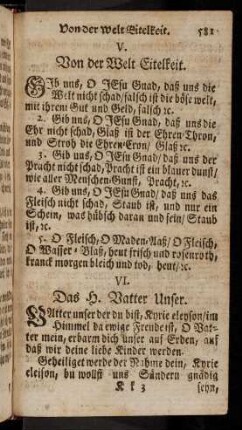 Von der Welt Eitelkeit. 581
V.
Von der Welt Eitelkeit.
Gib uns, O JEsu Gnad, daß uns die
Welt nicht schad/falsch ist die böse welt,
mit ihrem Gut und Geld, falsch ꝛc.
2. Gib uns, O JEsu Gnad, daß uns die
Ehr nicht schad, Glaß ist der Ehren-Thron,
und Stroh die Ehren-Cron/ Glaß ꝛc.
3. Gib uns, O JEsu Gnad/ daß uns der
Pracht nicht schad, Pracht ist ein blauer dunst/
wie aller Menschen-Gunst, Pracht, ꝛc.
4. Gib uns, O JEsu Gnad/ daß uns das
Fleisch nicht schad, Staub ist, und nur ein
Schein, was hübsch daran und sein/ Staub
ist, ꝛc.
5. O Fleisch, O Maden-Aaß/ O Fleisch,
O Wasser-Blaß, heut frisch und rosenroth,
kranck morgen bleich und tod, heut/ ꝛc.
VI.
Das H. Vatter Unser.
VAtter unser der du bist, Kyrie eleyson/im
Himmel da ewige Freude ist, O Vat-
ter mein, erbarm dich unser auf Erden, auf
daß wir deine liebe Kinder werden.
Geheiliget werde der Nahme dein, Kyrie
eleison, du wollst uns Sündern gnädig
K k 3 seyn,